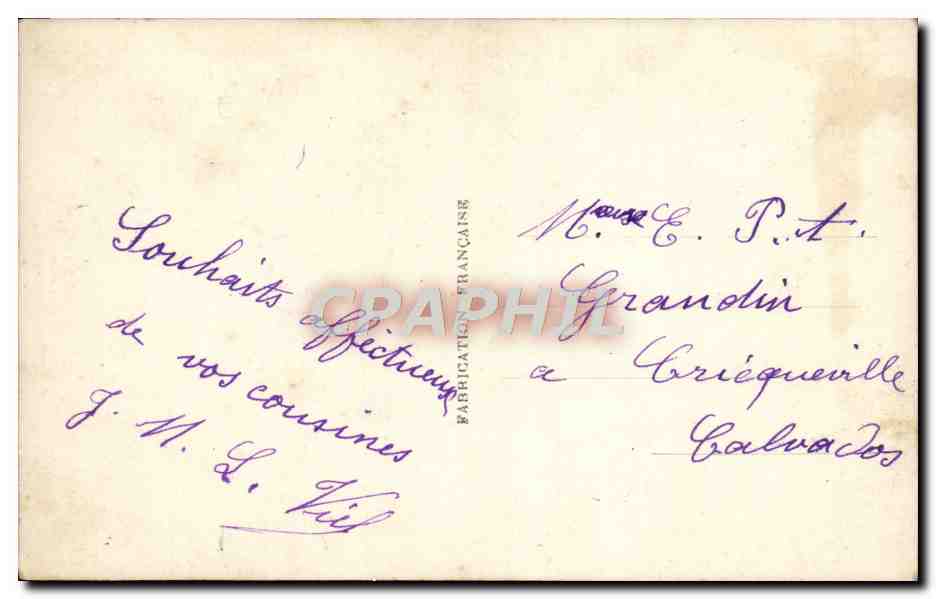 Souhaits affectueux
de vos cousines
J. M. L. Viel
FABRICATION FRANÇAISE
CPAPHIL
E. P. t.
Grandin
a Cricqueville
Calvados